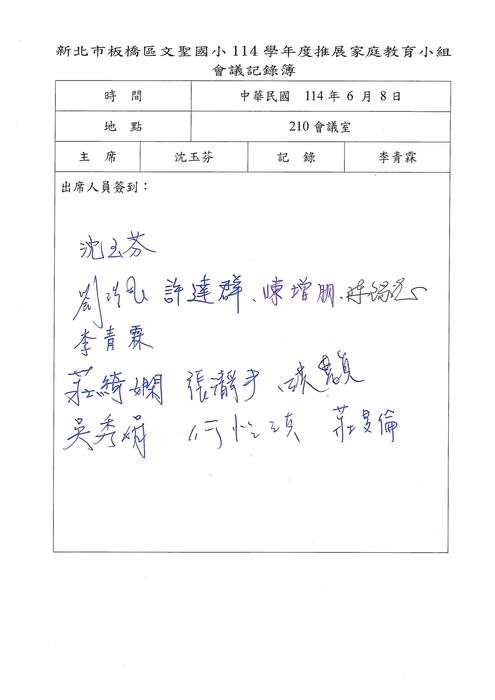 新北市板橋區文聖國小 114 學年度推展家庭教育小組
會議記錄簿
時 間 中華民國 114 年 6 月 8 日
地 點 210 會議室
主 席 沈玉芬 記 錄 李青霖
出席人員簽到：
沈玉芬
劉 許達群、陳增朋、陳
李青霖
莊綺嫻 張瀞予
吳秀娟 何怡 莊旻倫